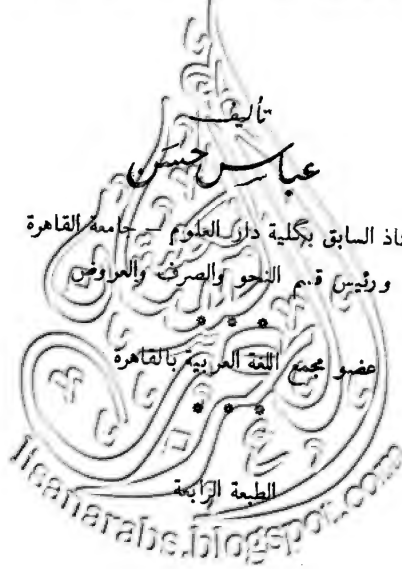 تأليف
عباس حسن
ـاذ السابق بكلية دار العلوم – جامعة القاهرة
ورئيس قسم النحو والصرف والعروض
عضو مجمع اللغة العربية بالقاهرة
الطبعة الرابعة
lisanarabs.blogspot.com